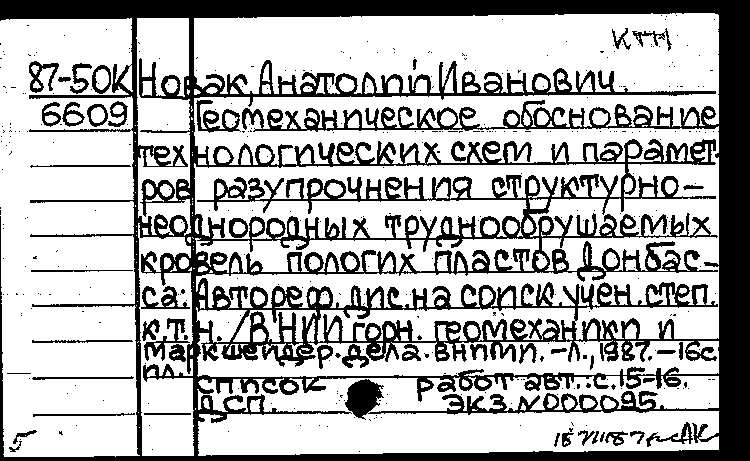 КТН
87-50К Новак, Анатолий Иванович.
6609 Геомеханическое обоснование
технологических схем и парамет-
ров разупрочнения структурно-
неоднородных труднообрушаемых
кровель пологих пластов Донбас-
са: Автореф. дис. на соиск. учен. степ.
к.т.н. /В.НИИ горн. геомеханики и
маркшейдер. дела. ВНИМИ. -Л., 1987. -16с.
ил.
список работ авт.: с.15-16.
ДСП. ЭКЗ. N000095.
5